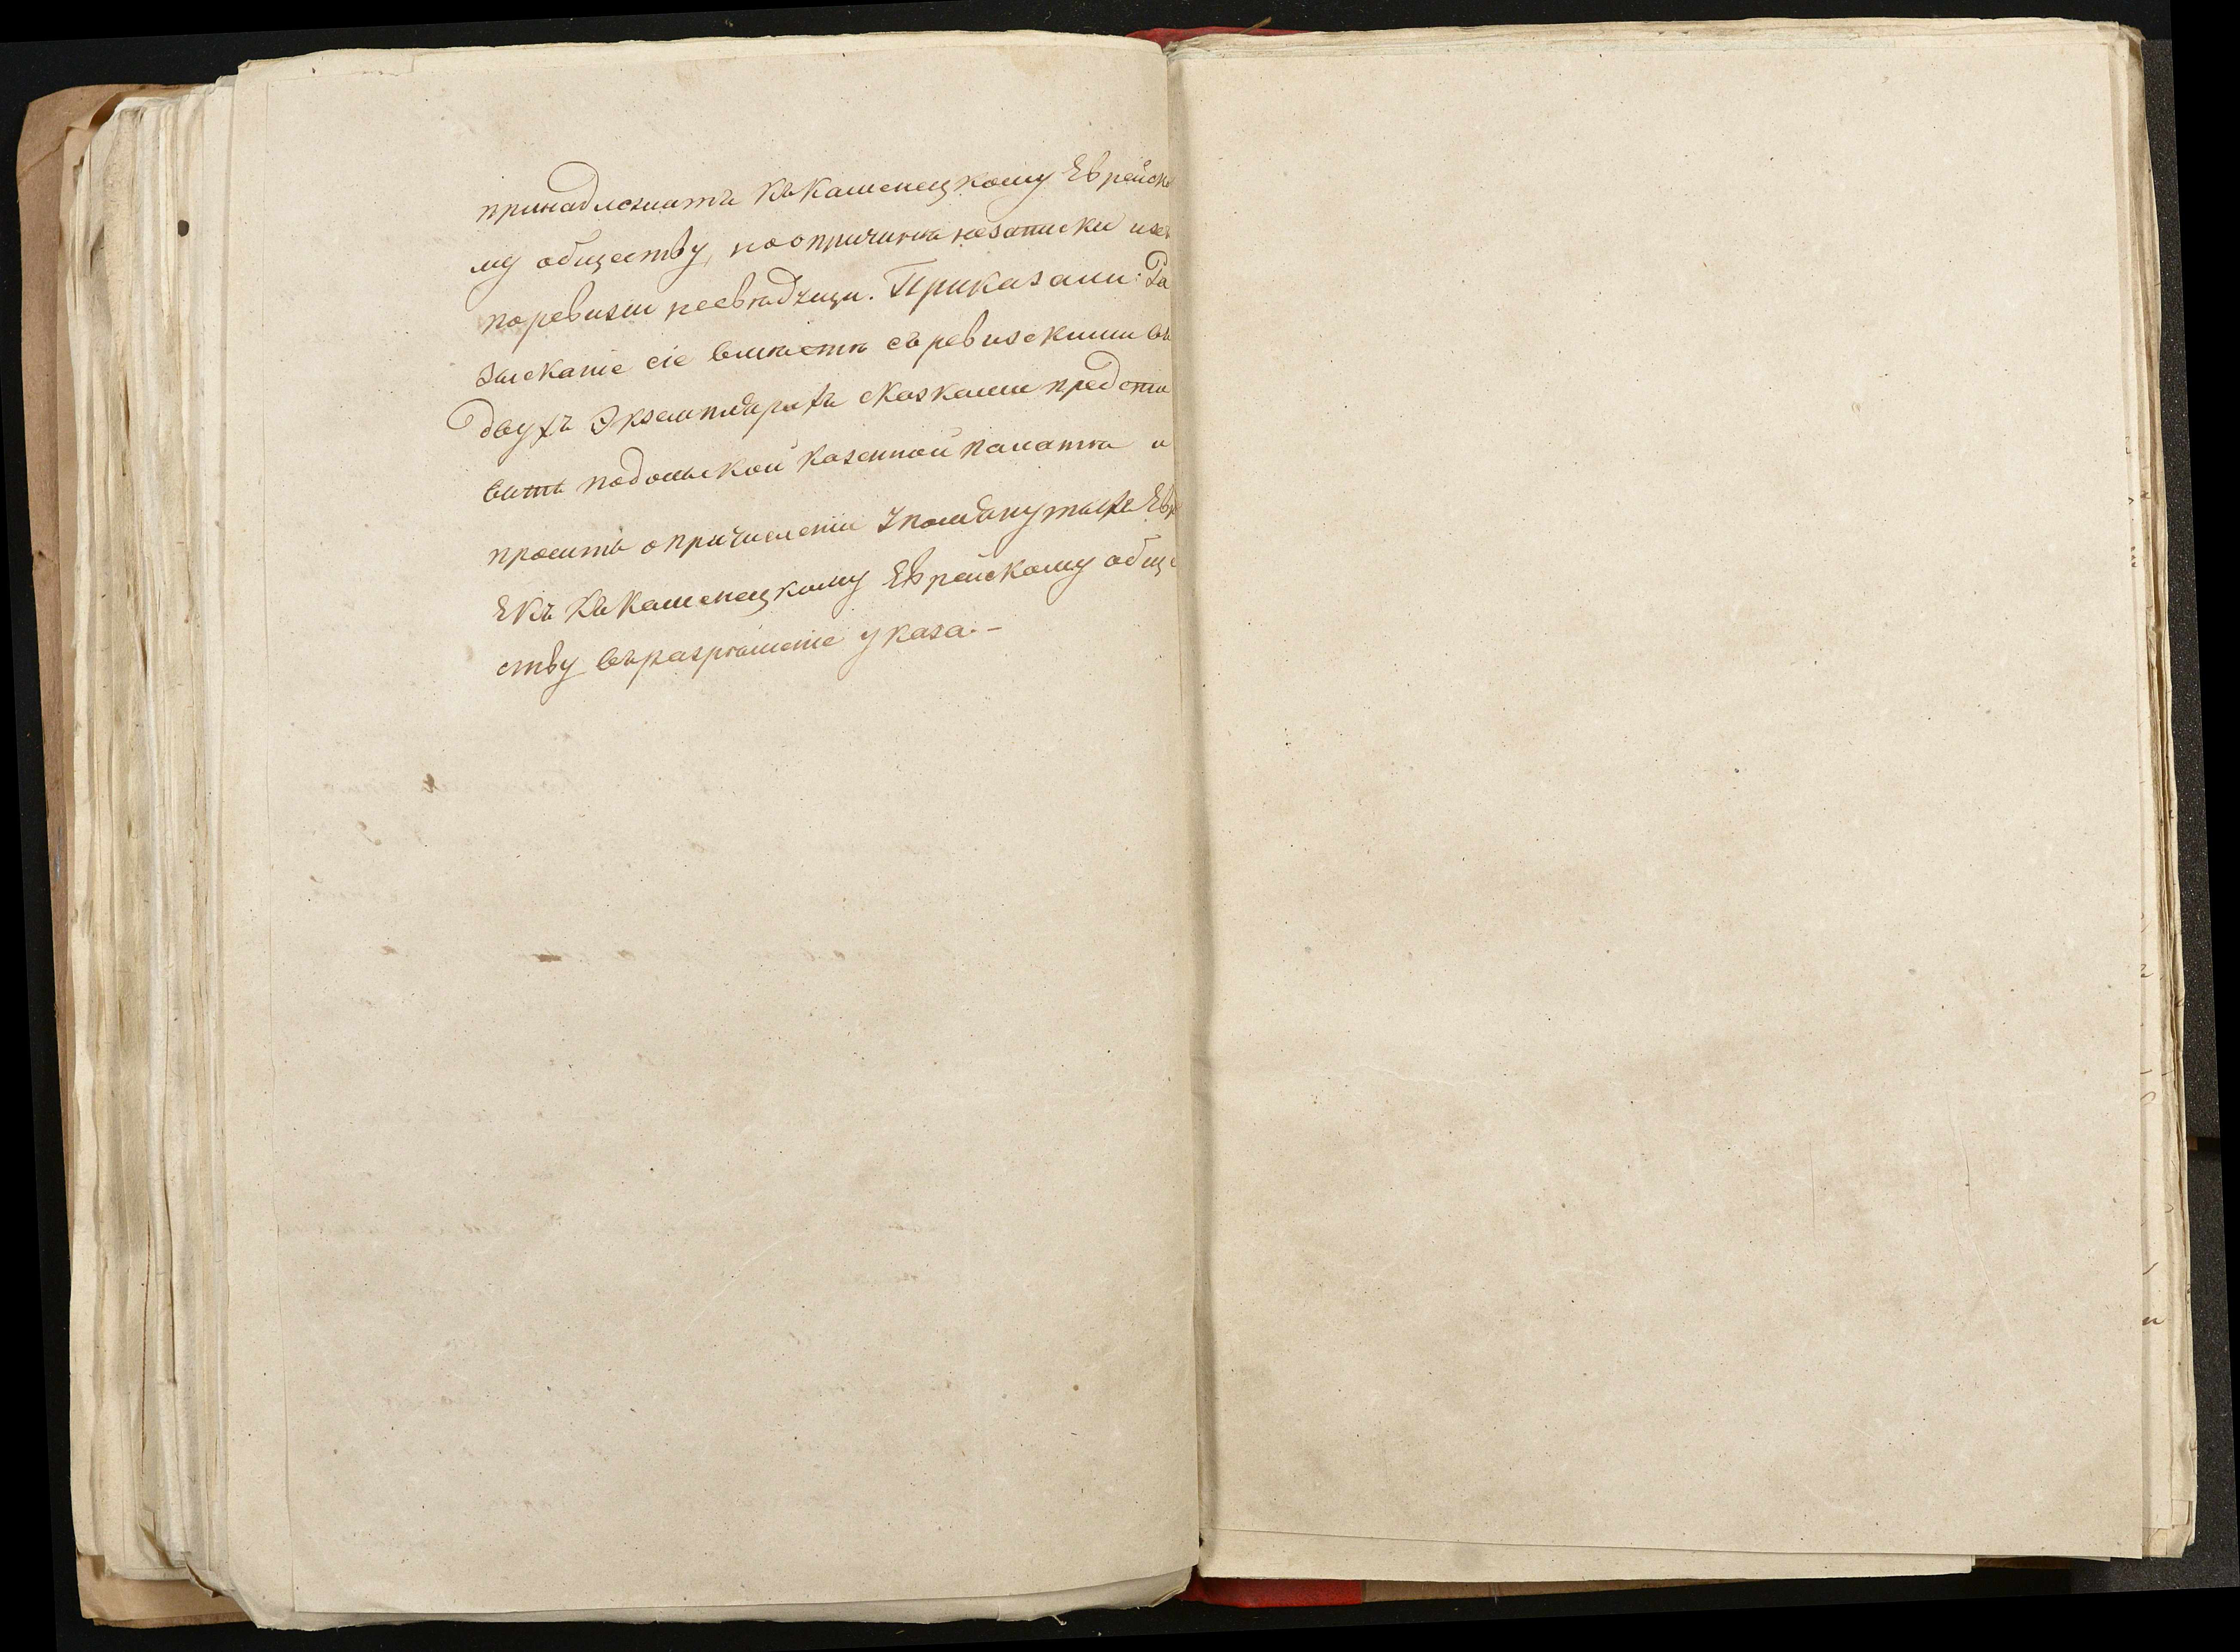 принадлежатъ къ Каменецкому Еврейско
му обществу, но о причинѣ незаписки ихъ
по ревизіи несвѣдущи. Приказали: Ра
зысканіе сіе вмѣстѣ съ ревизскими въ
двухъ Экземплярахъ сказками предста
вить подольской казенной палатѣ и
просить о причисленіи упомянутыхъ Евр
Екъ къ Каменецкому Еврейскому обще
ству въ разрѣшеніе указа.-